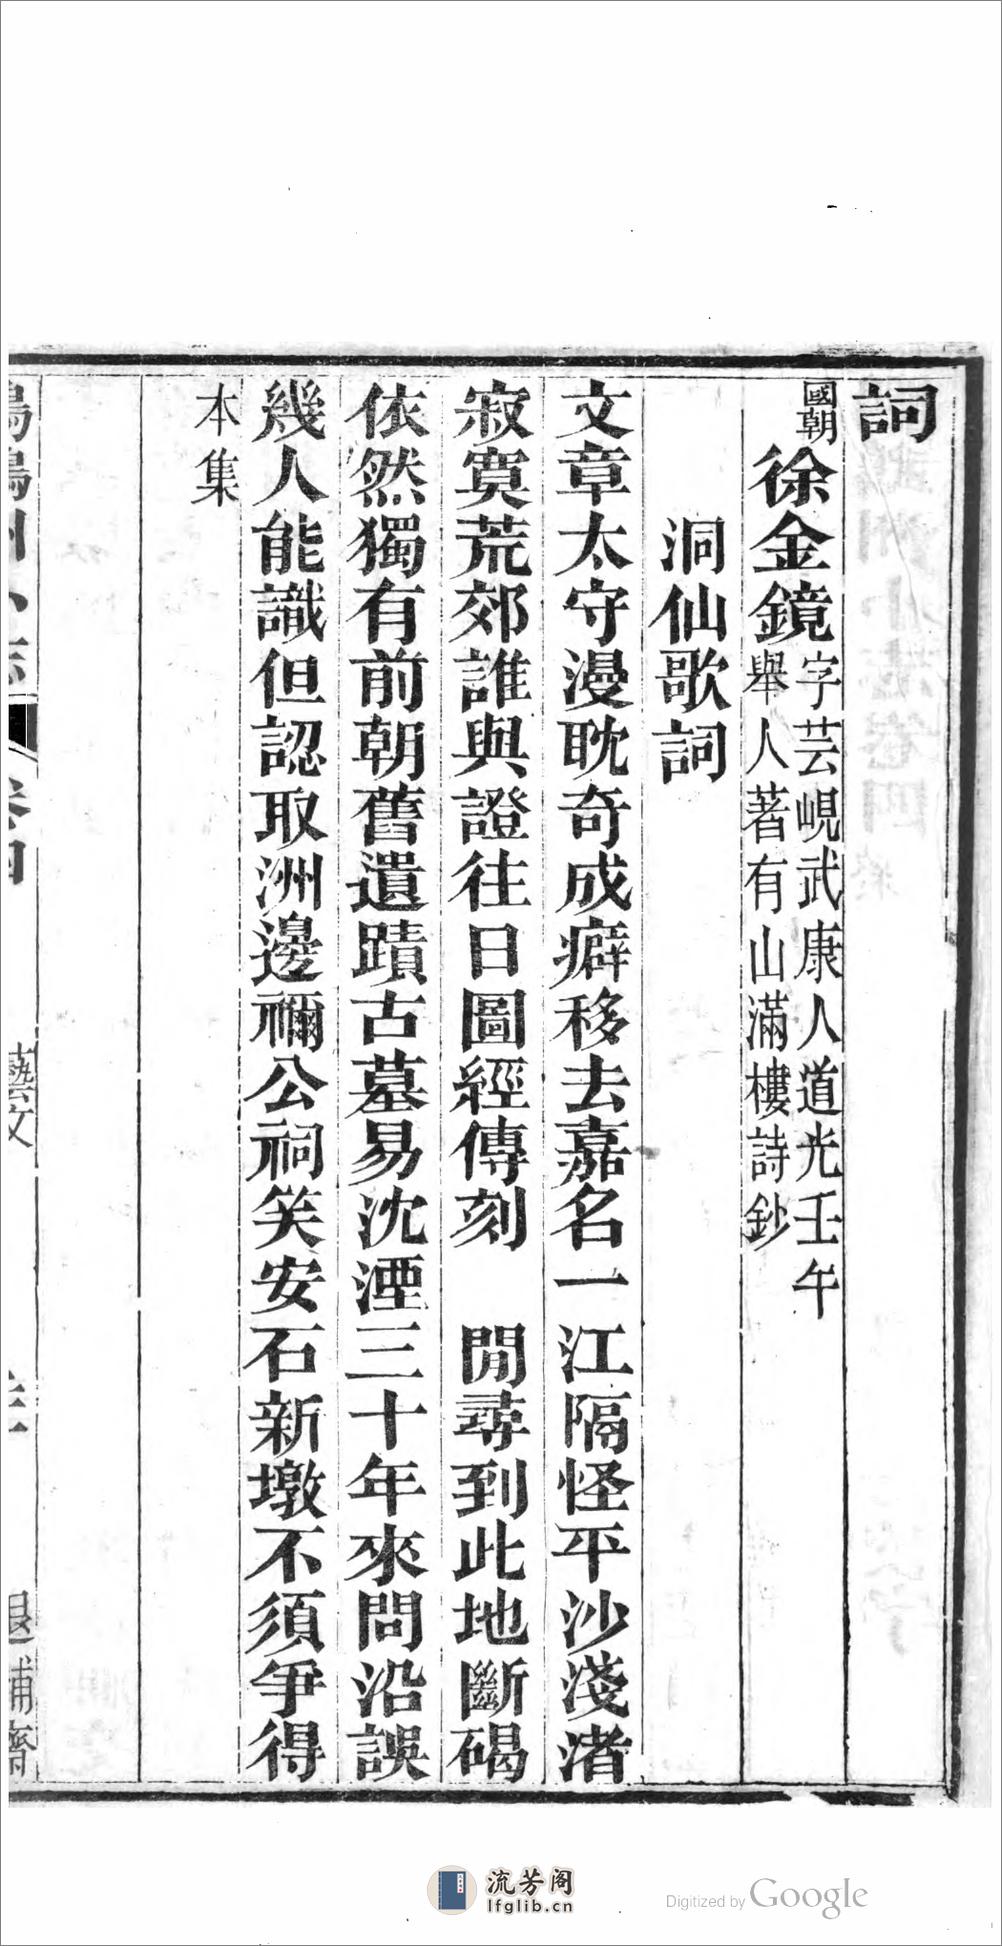 詞
國朝徐金鏡字芸峴武康人道光壬午
舉人著有山滿樓詩鈔
洞仙歌詞
文章太守漫耽奇成癖移去嘉名一江隔怪平沙淺渚
寂寞荒郊誰與證往日圖經傳刻　閒尋到此地斷碣
依然獨有前朝舊遺蹟古墓易沈湮三十年來問沿誤
幾人能識但認取洲邊禰公祠笑安石新墩不須爭得
本集
卷四
藝文
退補齋
流芳阁
lfglib.cn
Digitized by Google